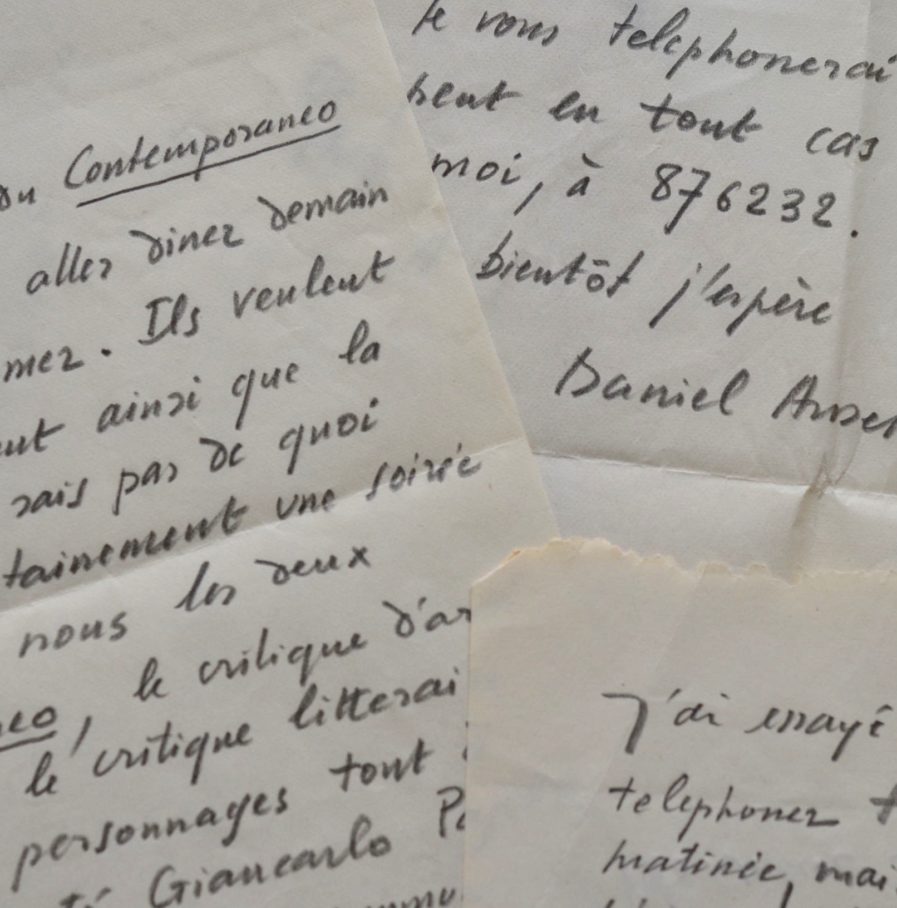 du Contemporaneo
aller diner demain
mer. Ils veulent
ut ainsi que la
sais pas de quoi
tainement une soirée
nous les deux
neo, le critique d'ar
le critique litterai
personnages tout
té Giancarlo Pa
Je vous telephonerai
peut en tout cas
moi, à 876232.
bientôt j'espère
Daniel Ansel
J'ai essayé
telephoner t
matinée, mai